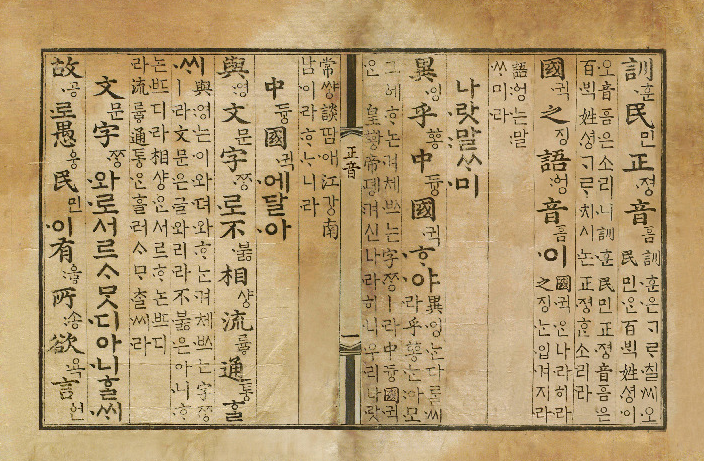 訓훈民민正졍音ᅙᅳᆷ 訓훈은ᄀᆞᄅᆞ칠씨오
民민은百ᄇᆡᆨ姓셩이
오音ᅙᅳᆷ은소리니訓훈民민正졍音ᅙᅳᆷ은
百ᄇᆡᆨ姓셩ᄀᆞᄅᆞ치시논正졍ᄒᆞᆫ소리라
國귁之징語엉音ᅙᅳᆷ이 國귁은나라히라
之징ᄂᆞᆫ입겨지라
語엉는말
ᄊᆞ미라
나랏말ᄊᆞ미
異잉乎ᅘᅩᆼ中듕國귁ᄒᆞ야 異잉ᄂᆞᆫ다ᄅᆞᆯ씨
라乎ᅘᅩᆼᄂᆞᆫ아모
그ᅌᅦᄒᆞ논겨체ᄡᅳ는字ᄍᆞᆼㅣ라中듕國귁
은 皇ᅘᅪᆼ帝뎽겨신나라히니우리나랏
正音
常쌰ᇰ談땀애江가ᇰ南
남이라ᄒᆞᄂᆞ니라
中듀ᇰ國귁에달아
與영文문字ᄍᆞᆼ로不부ᇙ相샤ᇰ流류ᇢ通토ᇰᄒᆞᆯ
ᄊᆡ 與영는이와뎌와ᄒᆞ는겨체ᄡᅳ는字ᄍᆞᆼ
ㅣ라文문은글와리라不부ᇙ은아니ᄒᆞ
논ᄠᅳ디라相샤ᇰᄋᆞᆫ서르ᄒᆞ논ᄠᅳ디
라流류ᇢ通토ᇰᄋᆞᆫ흘러ᄉᆞᄆᆞᄎᆞᆯ씨라
文문字ᄍᆞᆼ와로서르ᄉᆞᄆᆞᆺ디아니ᄒᆞᆯᄊᆡ
故고ᇰ로愚우ᇰ民민이有우ᇢ所소ᇰ欲욕言언